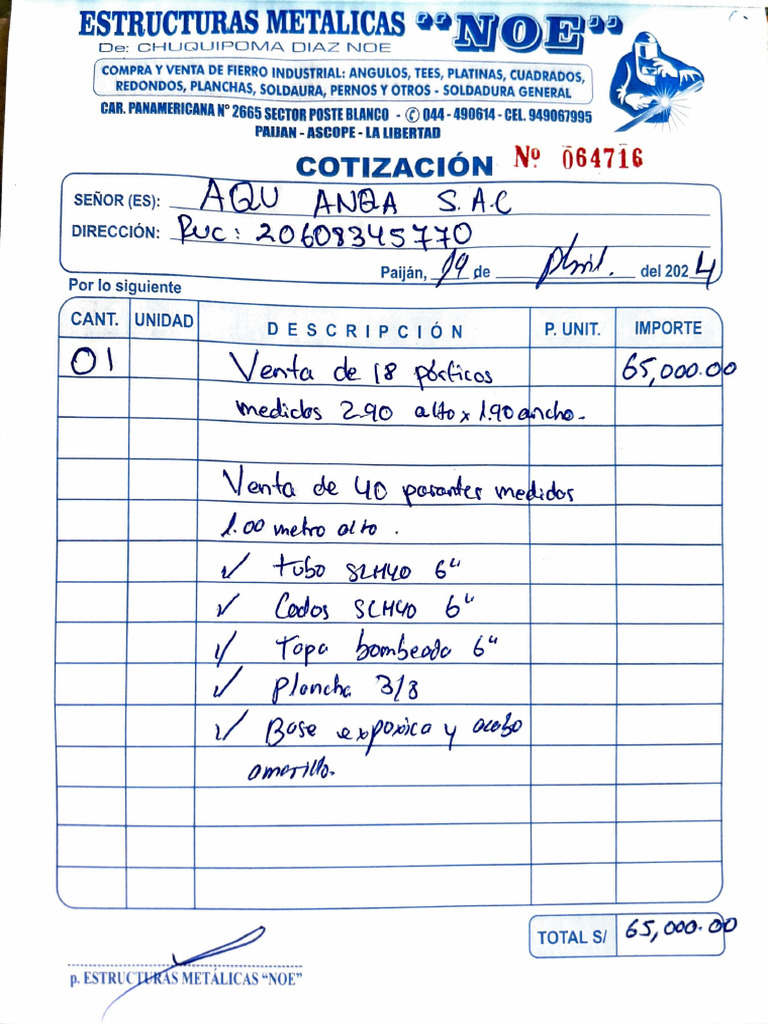 ESTRUCTURAS METALICAS "NOE"
De: CHUQUIPOMA DIAZ NOE
COMPRA Y VENTA DE FIERRO INDUSTRIAL: ANGULOS, TEES, PLATINAS, CUADRADOS,
REDONDOS, PLANCHAS, SOLDAURA, PERNOS Y OTROS - SOLDADURA GENERAL
CAR. PANAMERICANA N° 2665 SECTOR POSTE BLANCO - 044 - 490614 - CEL. 949067995
PAIJAN - ASCOPE - LA LIBERTAD
COTIZACIÓN Nº 064716
SEÑOR (ES): AQU ANQA S.A.C
DIRECCIÓN: Ruc: 20608345770
Paiján, 19 de Abril. del 2024
Por lo siguiente
CANT. UNIDAD DESCRIPCIÓN P. UNIT. IMPORTE
01 Venta de 18 pórticos 65,000.00
medidos 2.90 alto x 1.90 ancho.
Venta de 40 parantes medidos
1.00 metro alto.
✓ tubo SCH40 6"
✓ Codos SCH40 6"
✓ Tapa bombeada 6"
✓ Plancha 3/8
✓ Base expoxica y acabo
amarillo.
TOTAL S/ 65,000.00
p. ESTRUCTURAS METÁLICAS "NOE"